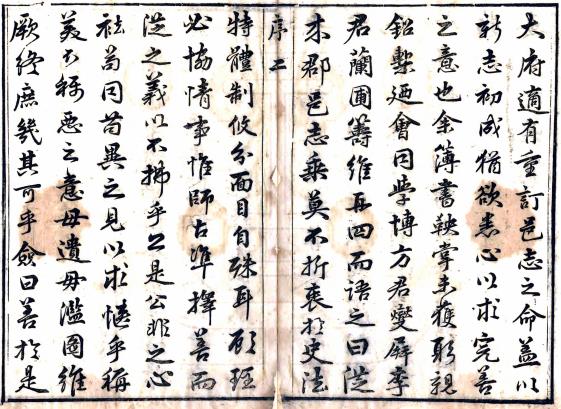 大府適有重訂邑志之命蓋以
新志初成猶欲悉心以求完善
之意也余簿書鞅掌未獲躬親
鉛槧廼會同學博方君燮屏李
君蘭圃籌維再四而語之曰從
來郡邑志乘莫不折衷於史法
序 二
特體制攸分面目自殊耳顧班
必協情事惟師古準擇善而
從之義以不拂乎公是公非之心
袪苟同苟異之見以求愜乎稱
美不稱惡之意毋遺毋濫圖維
厥終庶幾其可乎僉曰善於是